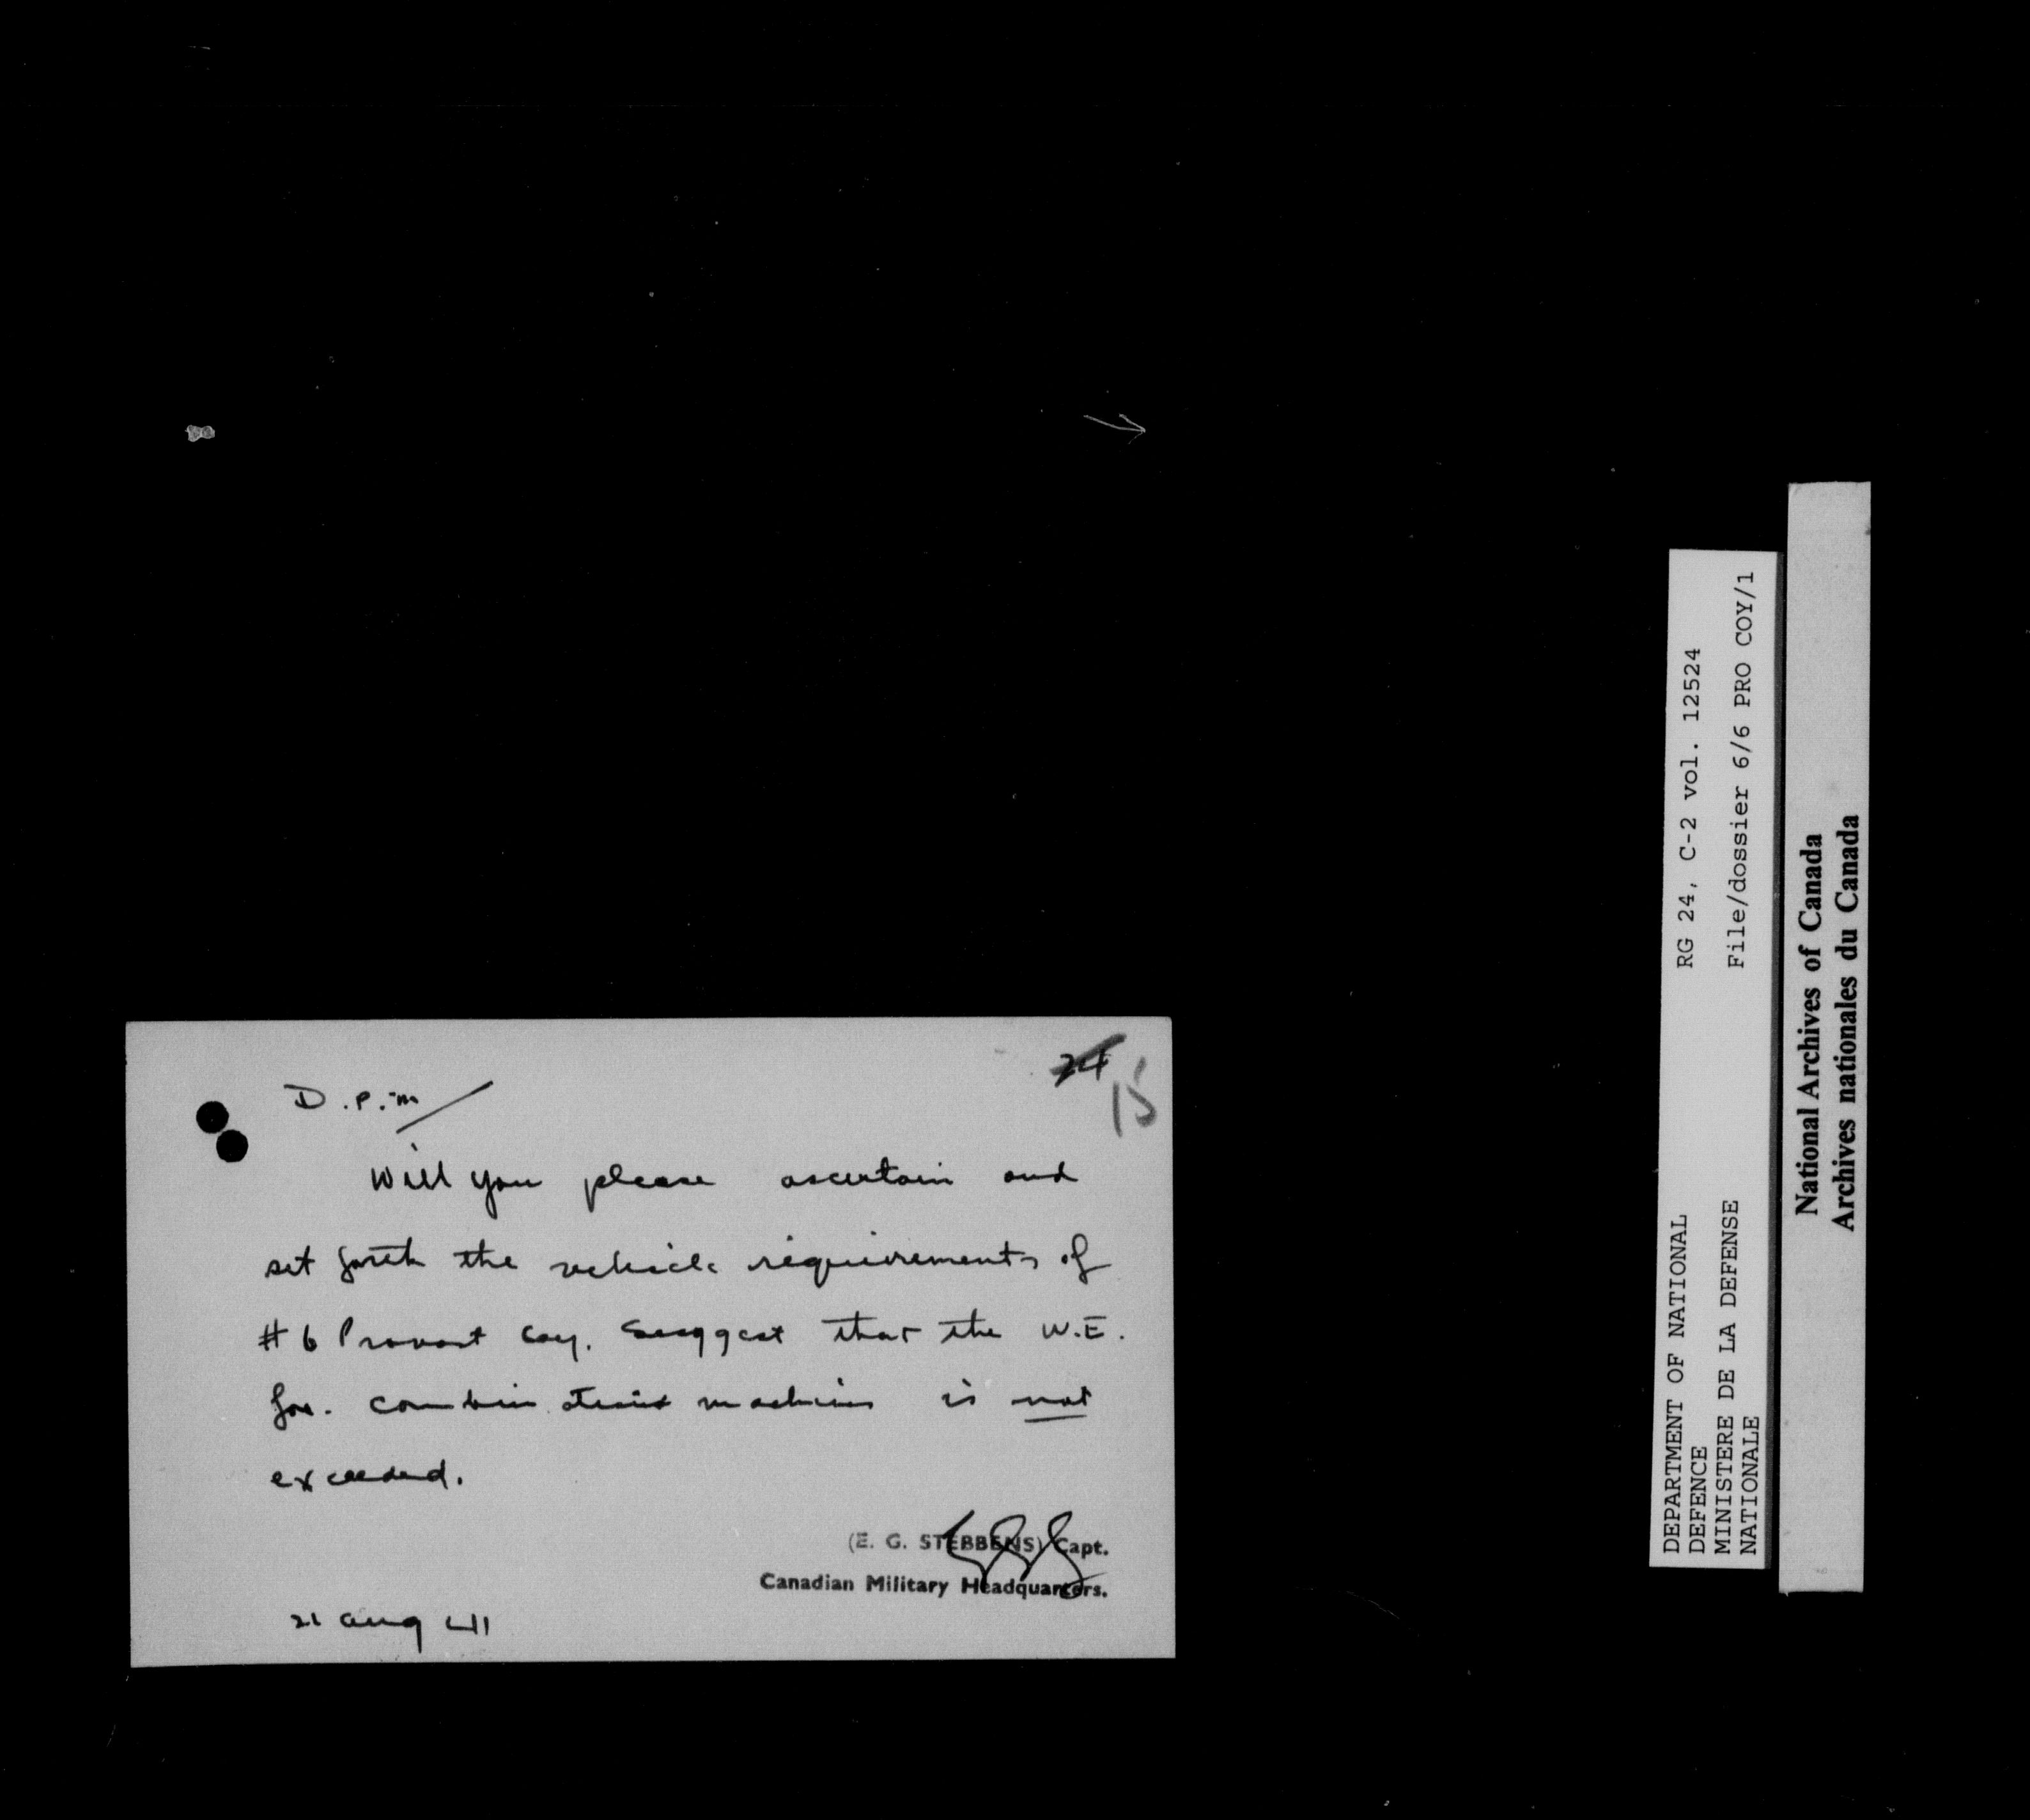 24
15
D.P.M
Will you please ascertain and
set forth the vehicle requirements of
# 6 Provost Coy. Suggest that the W.E.
for. machines is not
exceeded.
(E. G. STEBBENS) Capt.
Canadian Military Headquarters.
21 Aug 41
DEPARTMENT OF NATIONAL
DEFENCE
MINISTERE DE LA DEFENSE
NATIONALE
RG 24, C-2 vol. 12524
File/dossier 6/6 PRO COY/1
National Archives of Canada
Archives nationales du Canada